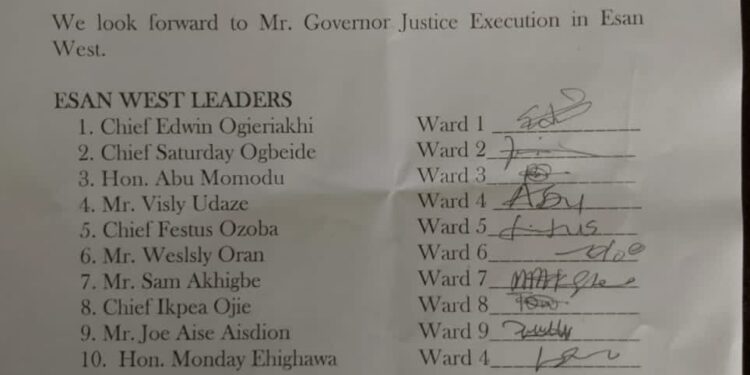 We look forward to Mr. Governor Justice Execution in Esan
West.
ESAN WEST LEADERS
1. Chief Edwin Ogieriakhi Ward 1
2. Chief Saturday Ogbeide Ward 2
3. Hon. Abu Momodu Ward 3
4. Mr. Visly Udaze Ward 4
5. Chief Festus Ozoba Ward 5
6. Mr. Weslsly Oran Ward 6
7. Mr. Sam Akhigbe Ward 7
8. Chief Ikpea Ojie Ward 8
9. Mr. Joe Aise Aisdion Ward 9
10. Hon. Monday Ehighawa Ward 4